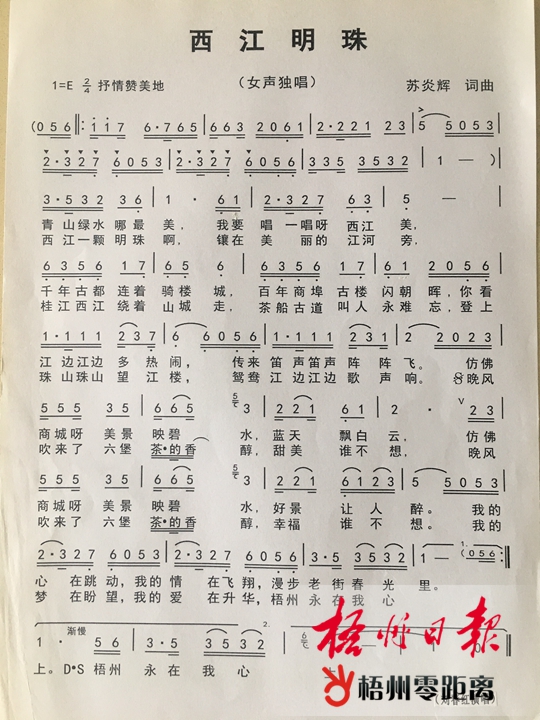 西江明珠
1=E 2/4 抒情赞美地 （女声独唱） 苏炎辉 词曲
(0 5 6 ‖: 1 1 7 | 6·7 6 5 | 6 3 | 2 0 6 1 | 2·2 2 1 | 2 3 | 5 5 0 5 3 |
2·3 2 7 | 6 0 5 3 | 2·3 2 7 | 6 0 5 3 | 3 3 5 | 3 5 3 2 | 1 — ) |
3·5 3 2 | 3 6 | 1 · | 6 1 | 2·3 2 7 | 6 3 | 5 — |
青山绿水哪最美，我要唱一唱呀西江美，
西江一颗明珠啊，镶在美丽的江河旁，
6 3 5 6 | 1 7 | 6 5 | 6 1 | 6 3 5 6 | 1 7 | 6 1 | 2 0 5 6 |
千年古都连着骑楼城，百年商埠古楼闪朝晖，你看
桂江西江绕着山城走，茶船古道叫人永难忘，登上
1·1 1 1 | 2 3 7 | 6 | 5 6 | 1·1 1 1 | 2 3 | 2 · | 2 3 |
江边江边多热闹，传来笛声笛声阵阵飞。仿佛
珠山珠山望江楼，鸳鸯江边江边歌声响。晚风
5 5 5 | 3 5 | 7 6 6 5 | 3 | 2 2 1 | 6 1 | 2 · | 2 3 |
商城呀美景映碧水，蓝天飘白云，仿佛
吹来了六堡茶·的香醇，甜美谁不想，晚风
5 5 5 | 3 5 | 7 6 6 5 | 3 | 2 2 1 | 2 3 | 5 · | 5 3 |
商城呀美景映碧水，好景让人醉。我的
吹来了六堡茶·的香醇，幸福谁不想。我的
2·3 2 7 | 6 0 5 3 | 2·3 2 7 | 6 0 5 3 | 3·5 | 3 5 3 2 | 1 — | (0 5 6) :‖
心在跳动，我的情在飞翔，漫步老街春光里。
梦在盼望，我的爱在升华，梧州永在我心
渐慢
1 · 5 6 | 3·5 | 3 5 3 2
上。D·S 梧州永在我心
梧州日报
梧州零距离